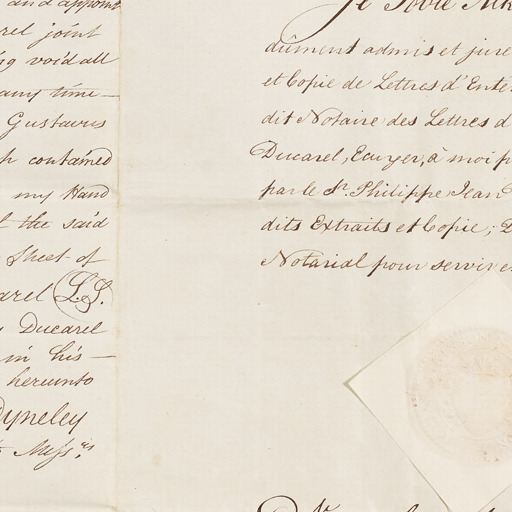 and appoint
rel joint
ng void all
any time —
Gustavus
contained
my Hand
the said
Sheet of
arel L.S.
Ducarel
in his —
hereunto
Dyneley
Mess.rs
Je
dûment admis et juré
et Copie de Lettres d'Enté
dit Notaire des Lettres d
Ducarel, Ecuyer, à moi p
par le Sr. Philippe Jean
dits Extraits et Copie; D
Notarial pour servir e